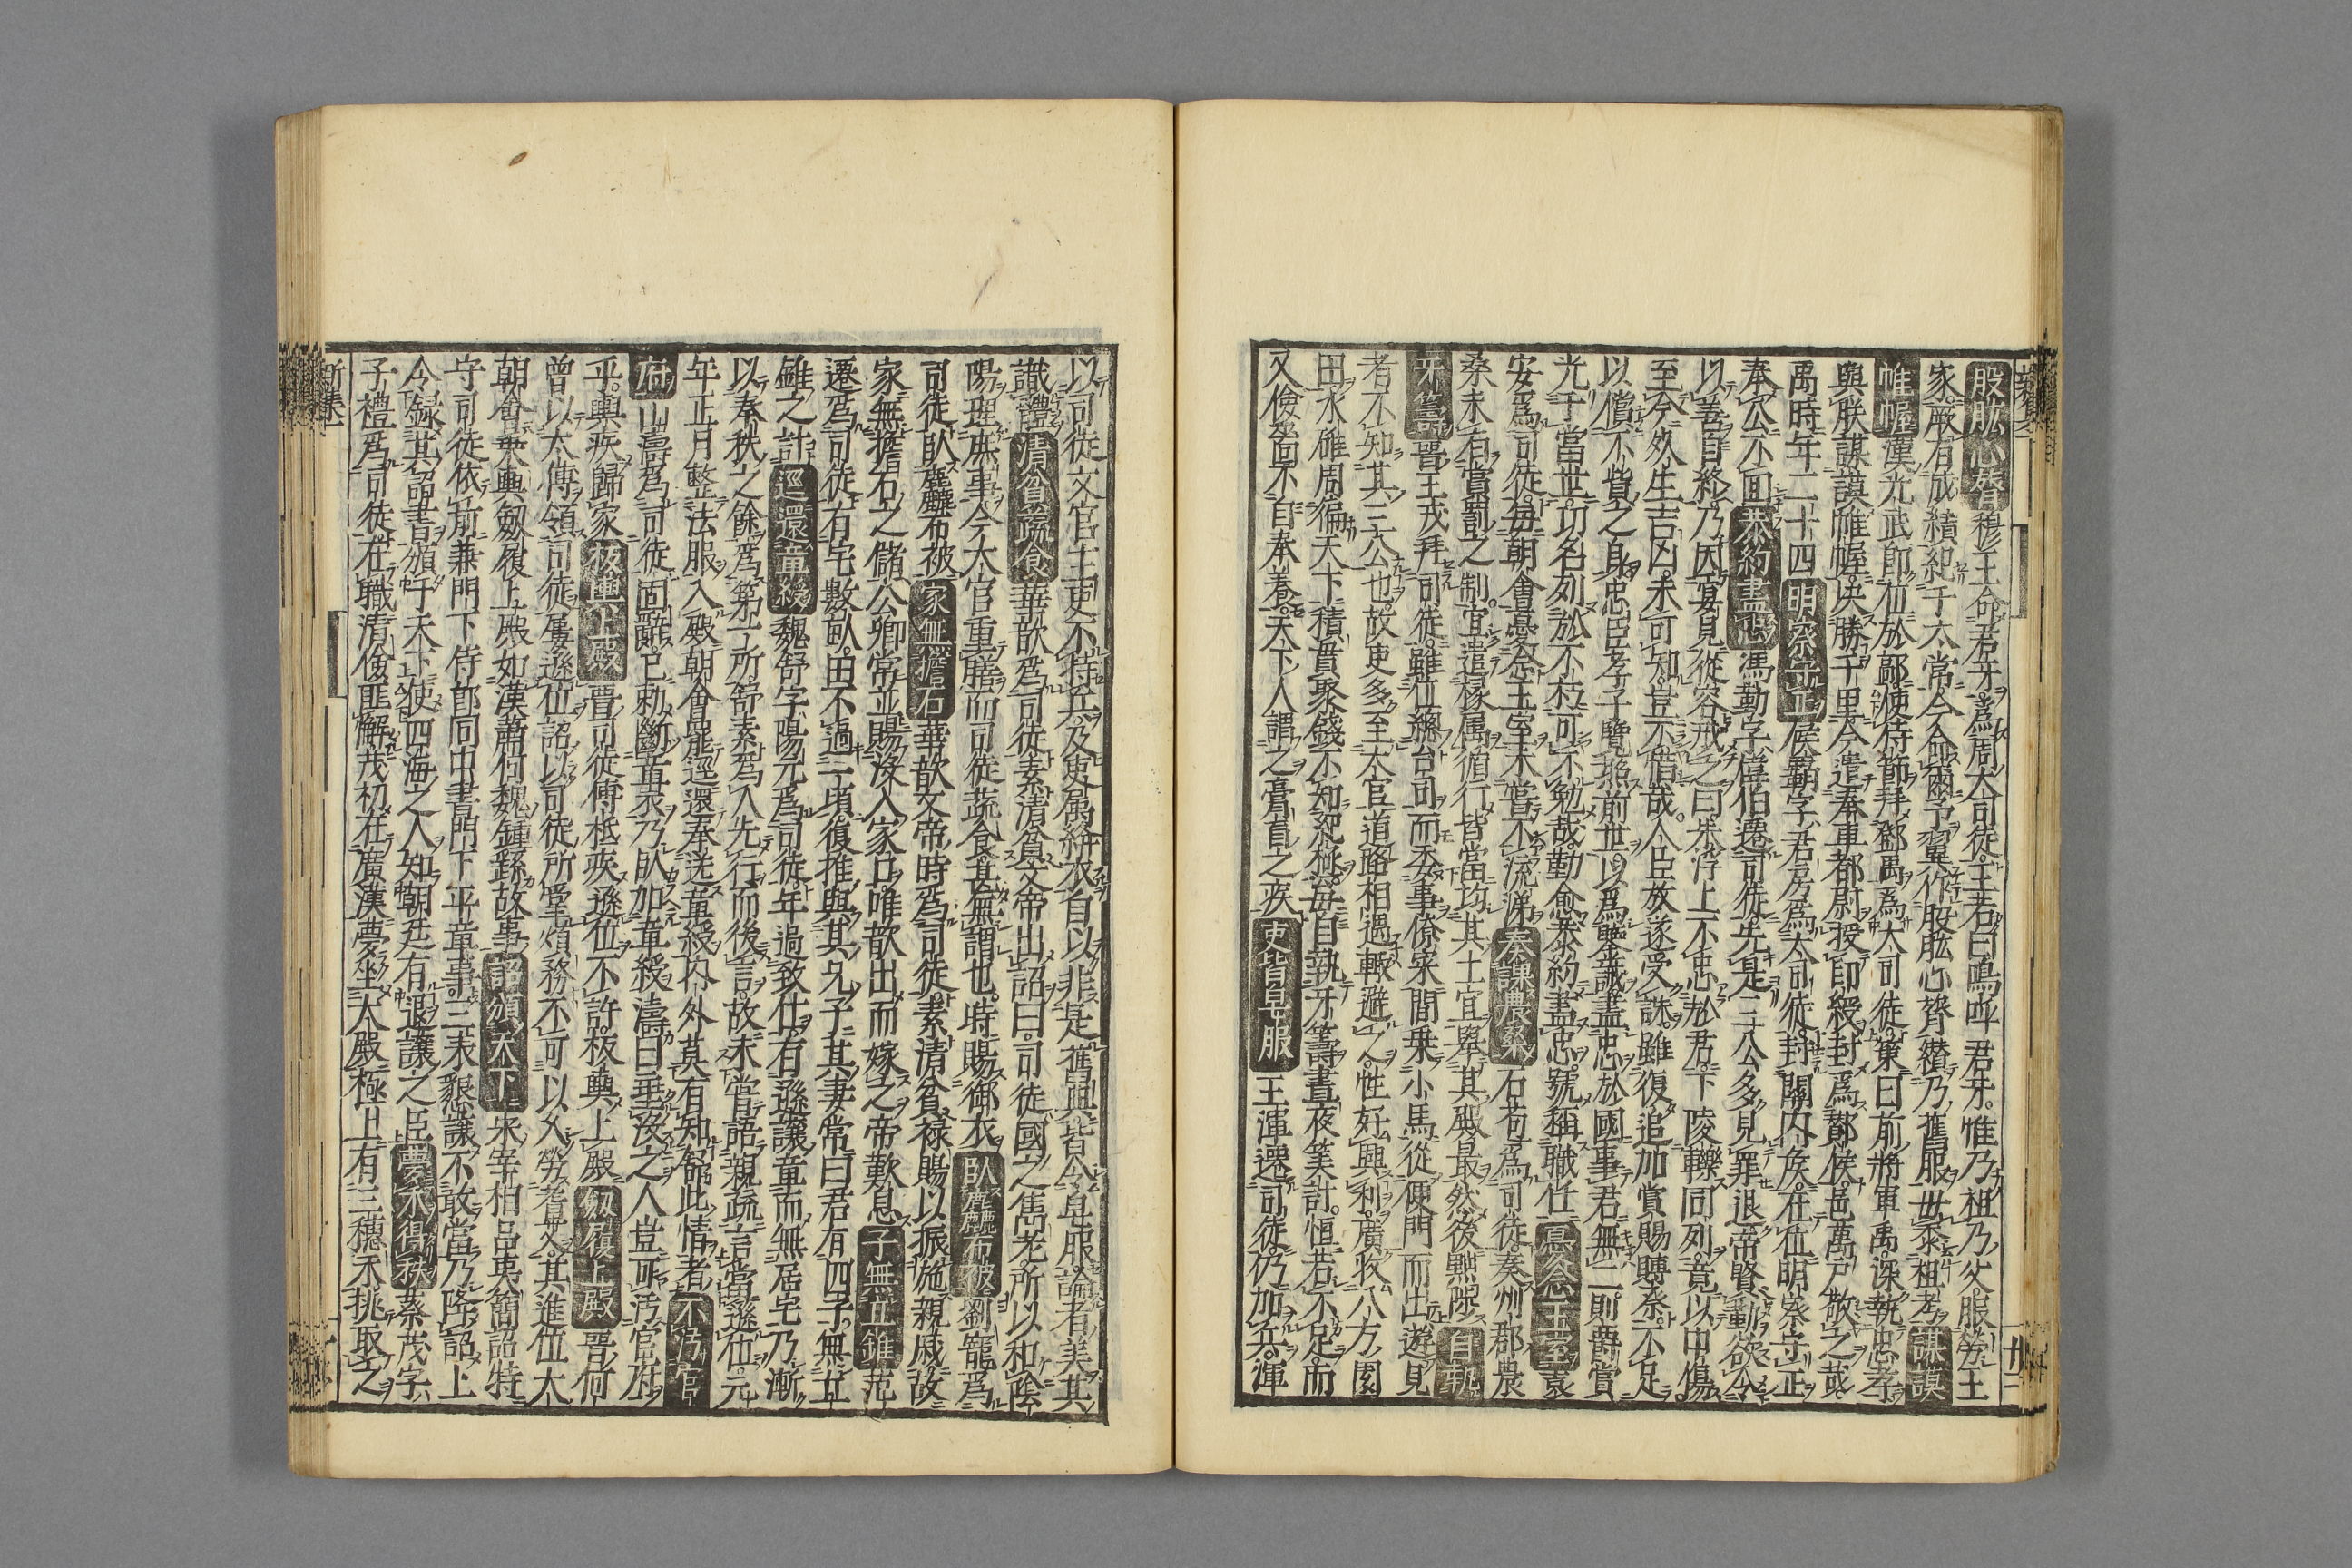 股肱心膂穆王命君牙爲周大司徒王若曰嗚呼君牙惟乃祖乃父服勞王
家厥有成績紀于太常今命爾予翼作股肱心膂纘乃舊服毋忝祖考謀謨
帷幄漢光武即位於鄗使持節拜鄧禹爲大司徒策曰前將軍禹深執忠孝
與朕謀謨帷幄決勝千里今遣奉車都尉授印綬封爲酇侯邑萬戸敬之哉
禹時年二十四明察守正侯霸字君房爲大司徒封關內侯在位明察守正
奉公不回恭約盡忠馮勤字偉伯遷司徒先是三公多見罪退帝賢勤欲令
以善自終乃因宴見從容戒之曰朱浮上不忠於君下陵轢同列竟以中傷
至今死生吉凶未可知豈不惜哉人臣放逐受誅雖復追加賞賜賻祭不足
以償不貲之身忠臣孝子覽照前世以爲鑒誡盡忠於國事君無二則爵賞
光于當世功名列於不朽可不勉哉勤愈恭約盡忠號稱職任憂念王室袁
安爲司徒每朝會憂念王室未嘗不流涕奏課農桑石苞爲司徒奏州郡農
桑未有賞罰之制宜遣掾属循行皆當均其土宜擧其殿最然後黜陟自執
牙籌晋王戎拜司徒雖位總台司而委事僚寀間乗小馬從便門而出遊見
者不知其三公也故吏多至大官道路相遇輙避之性好興利廣收八方園
田水碓周徧天下積實聚錢不知紀極每自執牙籌晝夜筭計恒若不足而
又儉嗇不自奉養天下人謂之膏肓之疾吏皆皂服王渾遷司徒仍加兵渾
以司徒文官主吏不持兵及吏属絳衣自以非是舊典皆令皂服論者美其
識體清貧蔬食華歆爲司徒素清貧文帝出詔曰司徒國之雋老所以和陰
陽理庶事今大官重膳而司徒蔬食甚無謂也時賜御衣臥麤布被劉寵爲
司徒臥麤布被家無擔石華歆文帝時爲司徒素清貧祿賜以振施親戚故
家無擔石之儲公卿常並賜沒入家口唯歆出而嫁之帝歎息子無立錐范
遷爲司徒有宅數畝田不過一頃復推與其兄子其妻常曰君有四子無立
錐之計逕還章綬魏舒字陽元爲司徒年過致仕有遜讓章而無居宅乃漸
以奉秩之餘爲第一所舒素爲人先行而後言故未嘗語親疏言當遜位元
年正月整法服入殿朝會罷逕還奉送章綬內外莫有知舒此情者不污官
府山濤爲司徒固辭已勑斷章表乃臥加章綬濤曰垂沒之人豈可污官府
乎輿疾歸家板輿上殿晋司徒傅祗疾遜位不許板輿上殿劔履上殿晋何
曾以太傅領司徒屢遜位詔以司徒所掌煩務不可以久勞耆艾其進位太
朝會乗輿劔履上殿如漢蕭何魏鍾繇故事詔頒天下宋宰相呂夷簡詔特
守司徒依前兼門下侍郎同中書門下平章事三表懇讓不敢當乃降詔上
令録其詔書頒于天下使四海之人知朝廷有退讓之臣夢禾得秩蔡茂字
子禮爲司徒在職清儉匪懈茂初在廣漢夢坐大殿極上有三穗禾挑取之